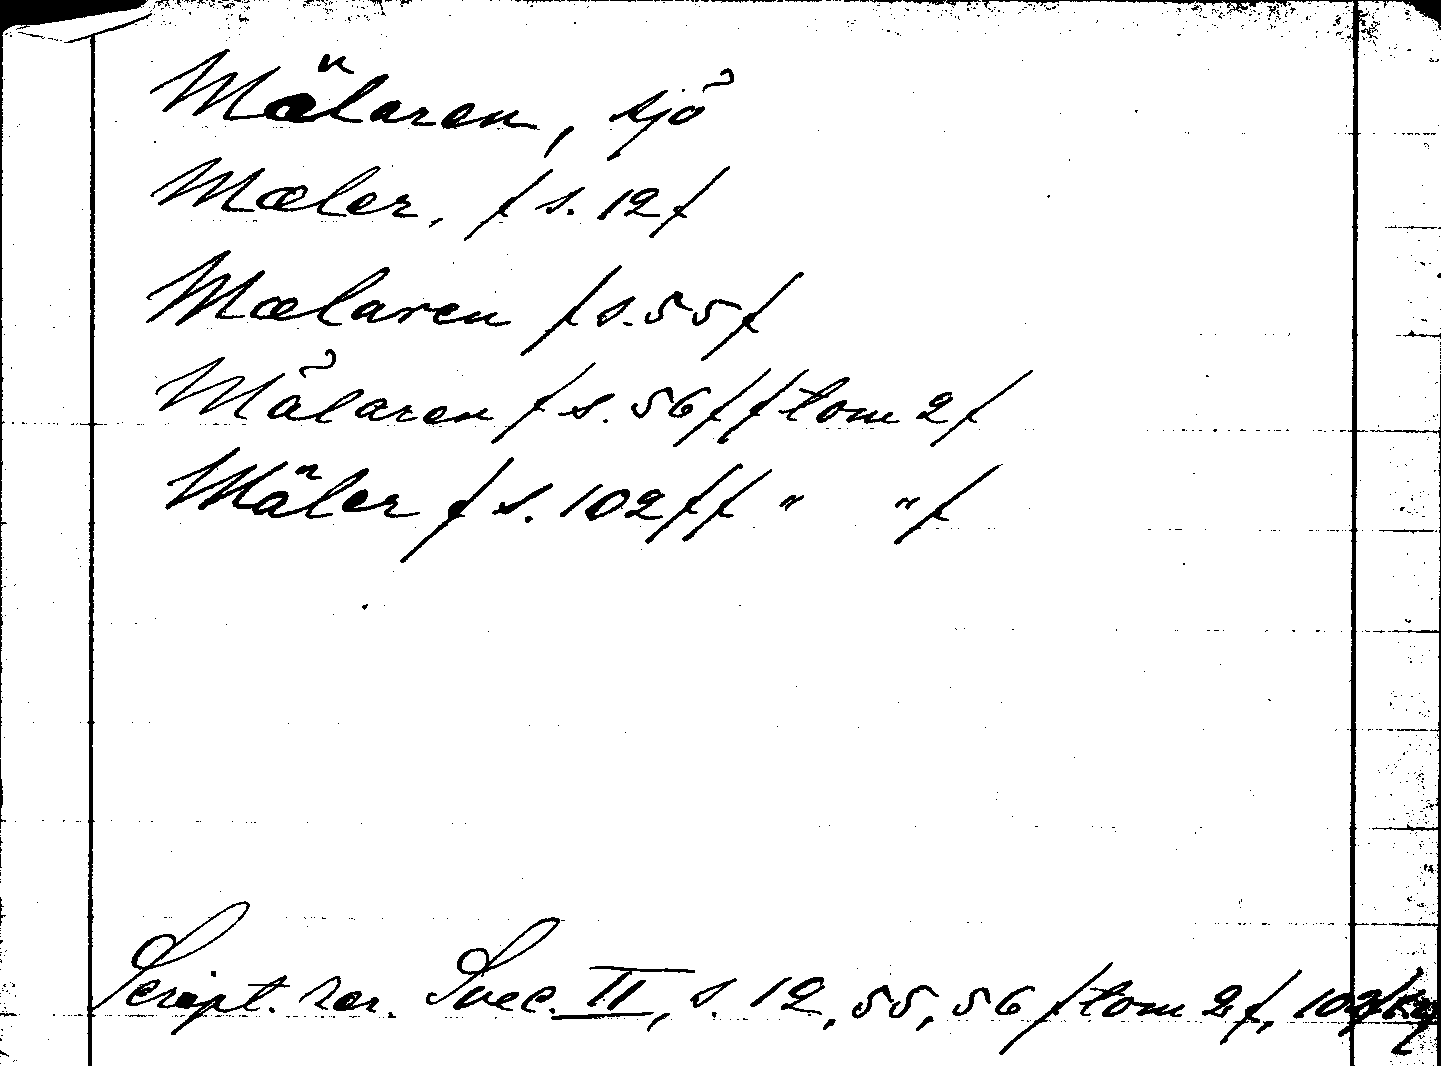 Mälaren, sjö
Mæler, / s. 12 /
Mælaren / s. 55 /
Mälaren / s. 56 / / tom 2 /
Mäler / s. 102 / / " " /
Script. rer. Svec. II, s. 12, 55, 56 / tom 2 /, 102